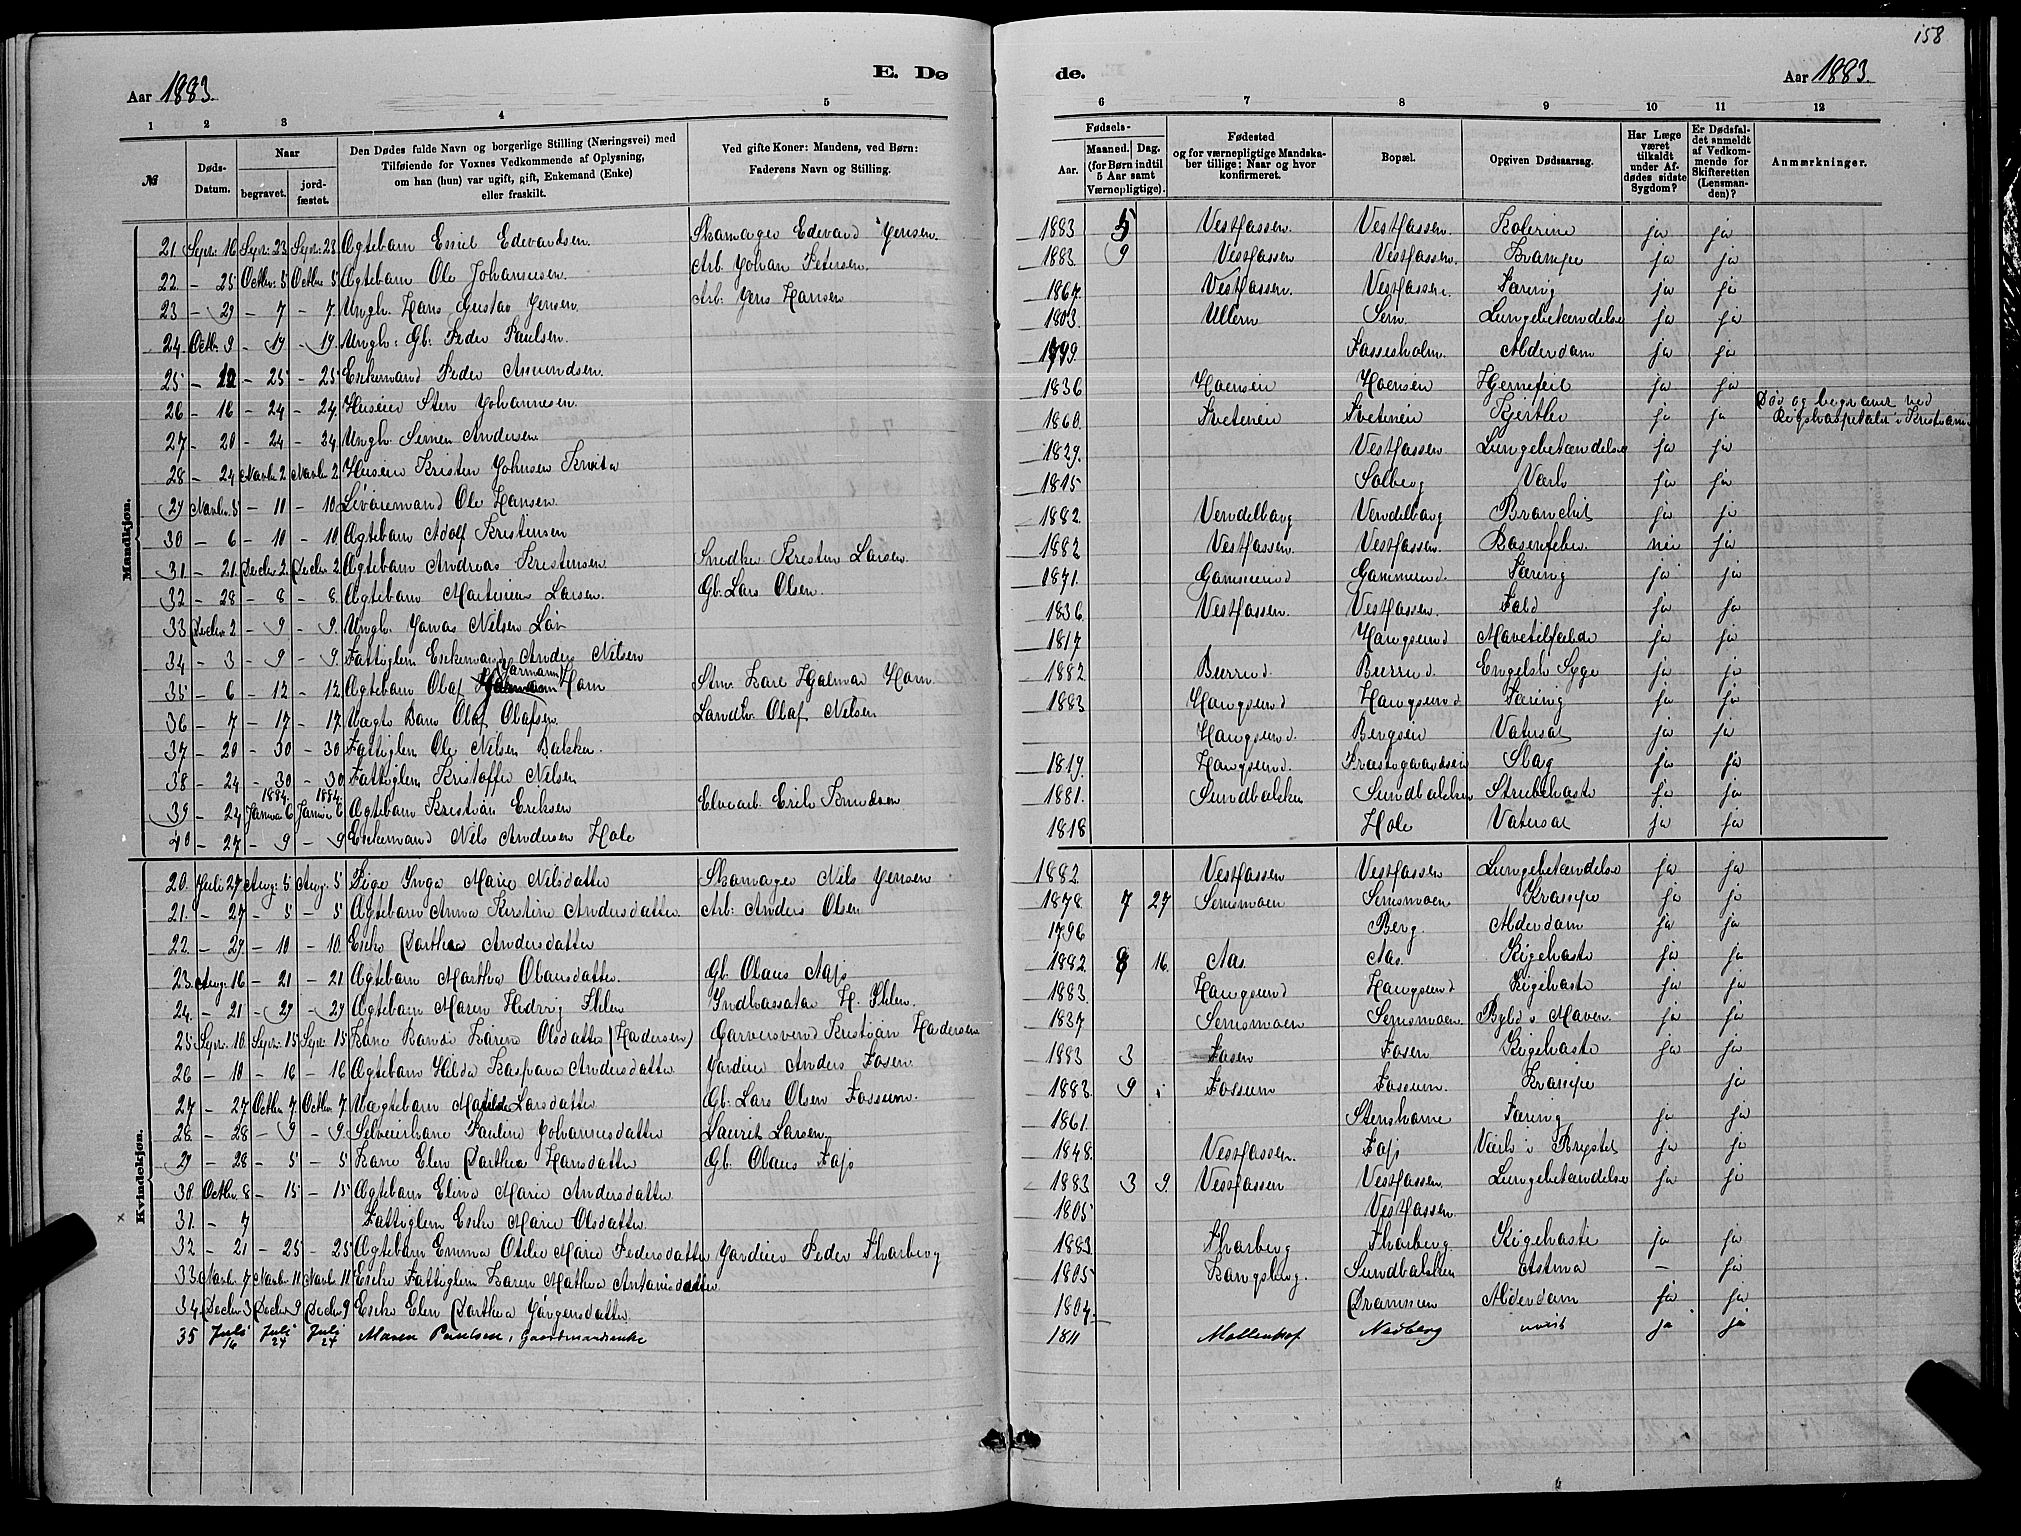 158
Aar 1883.
E. Dø
de.
Aar 1883.
1 2 3 4 5 6 7 8 9 10 11 12
№
Døds-Datum.
Naar
begravet.
jord-fæstet.
Den Dødes fulde Navn og borgerlige Stilling (Næringsvei) med
Tilføiende for Voxnes Vedkommende af Oplysning,
om han (hun) var ugift, gift, Enkemand (Enke)
eller fraskilt.
Ved gifte Koner: Mandens, ved Børn:
Faderens Navn og Stilling.
Fødsels-
Aar.
Maaned. Dag.
(for Børn indtil
5 Aar samt
Værnepligtige).
Fødested
og for værnepligtige Mandska-
ber tillige: Naar og hvor
konfirmeret.
Bopæl.
Opgiven Dødsaarsag.
Har Læge
været
tilkaldt
under Af-
dødes sidste
Sygdom?
Er Dødsfal-
det anmeldt
af Vedkom-
mende for
Skifteretten
(Lensman-
den)?
Anmærkninger.
Mandkjøn.
21. Septr. 16 Septr. 23 Septr. 23 Ægtebarn Emil Edvardsen. Skomager Edvard Jensen. 1883 5 Vestfossen. Vestfossen. Kolerine ja ja
22 - 25 Octbr. 5 Octbr. 5 Ægtebarn Ole Johannesen. Arb. Johan Petersen. 1883. 9 Vestfossen Vestfossen. Krampe ja ja
23 - 29 - 7 - 7 Ungk. Hans Gustav Jensen. Arb: Jens Hansen 1867. Vestfossen. Vestfossen. Tæring ja ja
24. Octb. 9 - 17 - 17. Ungk: Gb. Peder Paulsen. 1803. Ullern Sem. Lungebetændelse ja ja
25 - 12 - 25 - 25 Enkemand Peder Amundsen. 1799. Fossesholm. Alderdom ja ja
26 - 16 - 24 - 24. Huseier Sten Johannesen. 1836 Hoenseie Hoenseie Hjertefeil ja ja
27 - 20 - 24 - 24. Ungk. Simen Andersen 1860. Tveteneie Tveteneie Kjertler ja ja Død og begravet ved Rigshospitalet i Kristiania
28 - 24 Novbr. 2 Novbr. 2 Huseier Kristen Johnsen 1829. Vestfossen Lungebetændelse ja ja
29 Novbr. 5 - 10 - 10 Livøremand Ole Hansen. 1815 Solberg Værk ja ja
30 - 6 - 10 - 10 Ægtebarn Adolf Kristensen 1882. Vendelborg Vendelborg Bronchit ja ja
31. - 21. Decbr 2. Decbr 2. Ægtebarn Andreas Kristensen. Snedker Kristen Larsen. 1882 Vestfossen. Vestfossen. nei ja
32 - 28 - 8 - 8. Ægtebarn Martinius Larsen. Gb. Lars Olsen. 1871. Tæring ja ja
33 Decbr 2 - 9 - 9. Ungk. Jonas Nilsen 1836 Vestfossen. Vestfossen. Fald ja ja
34 - 3 - 9 - 9. Fattiglem Enkemand Anders Nilsen 1817 Hougsund Mavetilfælde ja ja
35 - 6 - 12 - 12 Ægtebarn Olaf Hjarmann Horn Stm. Karl Hjalmar Horn 1882. Burrud. Burrud. Engelsk Syge ja ja
36 - 7 - 17 - 17. Uægte Barn Olaf Olafsen. Landhr. Olaf Nilsen 1883 Hougsund Hougsund Tæring ja ja
37 - 20 - 30 - 30 Fattiglem Ole Nilsen Bakken. Hougsund. Bergseie Vatersot ja ja
38 - 24 - 30 - 30 Fattiglem Kristoffer Nilsen 1819. Hougsund. Slag ja ja
39 - 24 1884 Januar 6 1884 Januar 6 Ægtebarn Kristian Eriksen Elvearb. Erik Knudsen 1881. Sundbakken Sundbakken Strubehoste ja ja
40 - 27 - 9 - 9 Enkemand Nils Andersen Hole 1818 Hole Vatersot ja ja
Kvindekjøn.
20. Juli 27 Aug: 5 Aug: 5 Pige Inga Marie Nilsdatter Skomager Nils Jensen 1882. Vestfossen Vestfossen Lungebetændelse ja ja
21. - 27 - 5 - 5 Ægtebarn Anna Kirstine Andersdatter. Arb: Anders Olsen 1878. 7 27 Semsmoen Semsmoen Krampe ja ja
22. - 29 - 10 - 10. Enke Dorthea Andersdatter 1796 Berg. Alderdom ja ja
23. Aug. 16 - 21 - 21 Ægtebarn Marthea Olausdatter Gb. Olaus Aas 1882. 8 16. Aas. Aas. Kigehoste ja ja
24. - 21 - 29 - 29 Ægtebarn Maren Hedvig Ihlen Indkassator H. Ihlen. 1883. Hougsund Hougsund Kigehoste ja ja
25. Septr. 10 Septr. 15 Septr. 15 Kone Randi Karine Olsdatter (Hadersen) Garversvend Kristian Hadersen 1837 Semsmoen Semsmoen. Byld i Maven ja ja
26 - 10 - 16 - 16 Ægtebarn Hilda Kaspara Andersdatter Jordeier Anders Foser. 1883 3 Fosen Fosen Kigehoste ja ja
27 - 27 Octbr 7 Octbr. 7 Uægtebarn Mathilde Larsdatter Gb. Lars Olsen Fossum. 1883. 9 1 Fossum Fossum. Krampe ja
28. - 28 - 9 - 9. Selveierkone Pauline Johannesdatter Laurits Larsen 1861. Tæring ja ja
29 - 28 - 5 - 5 Kone Elen Dorthea Hansdatter Gb. Olaus 1848. Vestfossen. Værk i Brystet ja ja
30. Octbr. 8 - 15 - 15 Ægtebarn Elina Marie Andersdatter 1883 3 9. Vestfossen Vestfossen Lungebetændelse ja ja
× 31. - 7 Fattiglem Enke Marie Olsdatter 1805 Vestfossen.
32 - 21 - 25 - 25 Ægtebarn Emma Otilie Marie Pedersdatter Jordeier Peder Skarberg 1883 Skarberg Skarberg Kigehoste ja ja
33. Novbr. 7 Novbr. 11 Novbr. 11 Enke Fattiglem Karen Mathea Antonisdatter 1805 Kongsberg. Sundbakken Astma - ja
34. Decbr. 3 Decbr. 9 Decbr. 9 Enke Elen Dorthea Jørgensdatter. 1804. Drammen Alderdom ja ja
35 Juli 16 Juli 24 Juli 24 Maren Paulsen, Gaardmandsenke 1811 Møllenhof Nedberg uvist ja ja